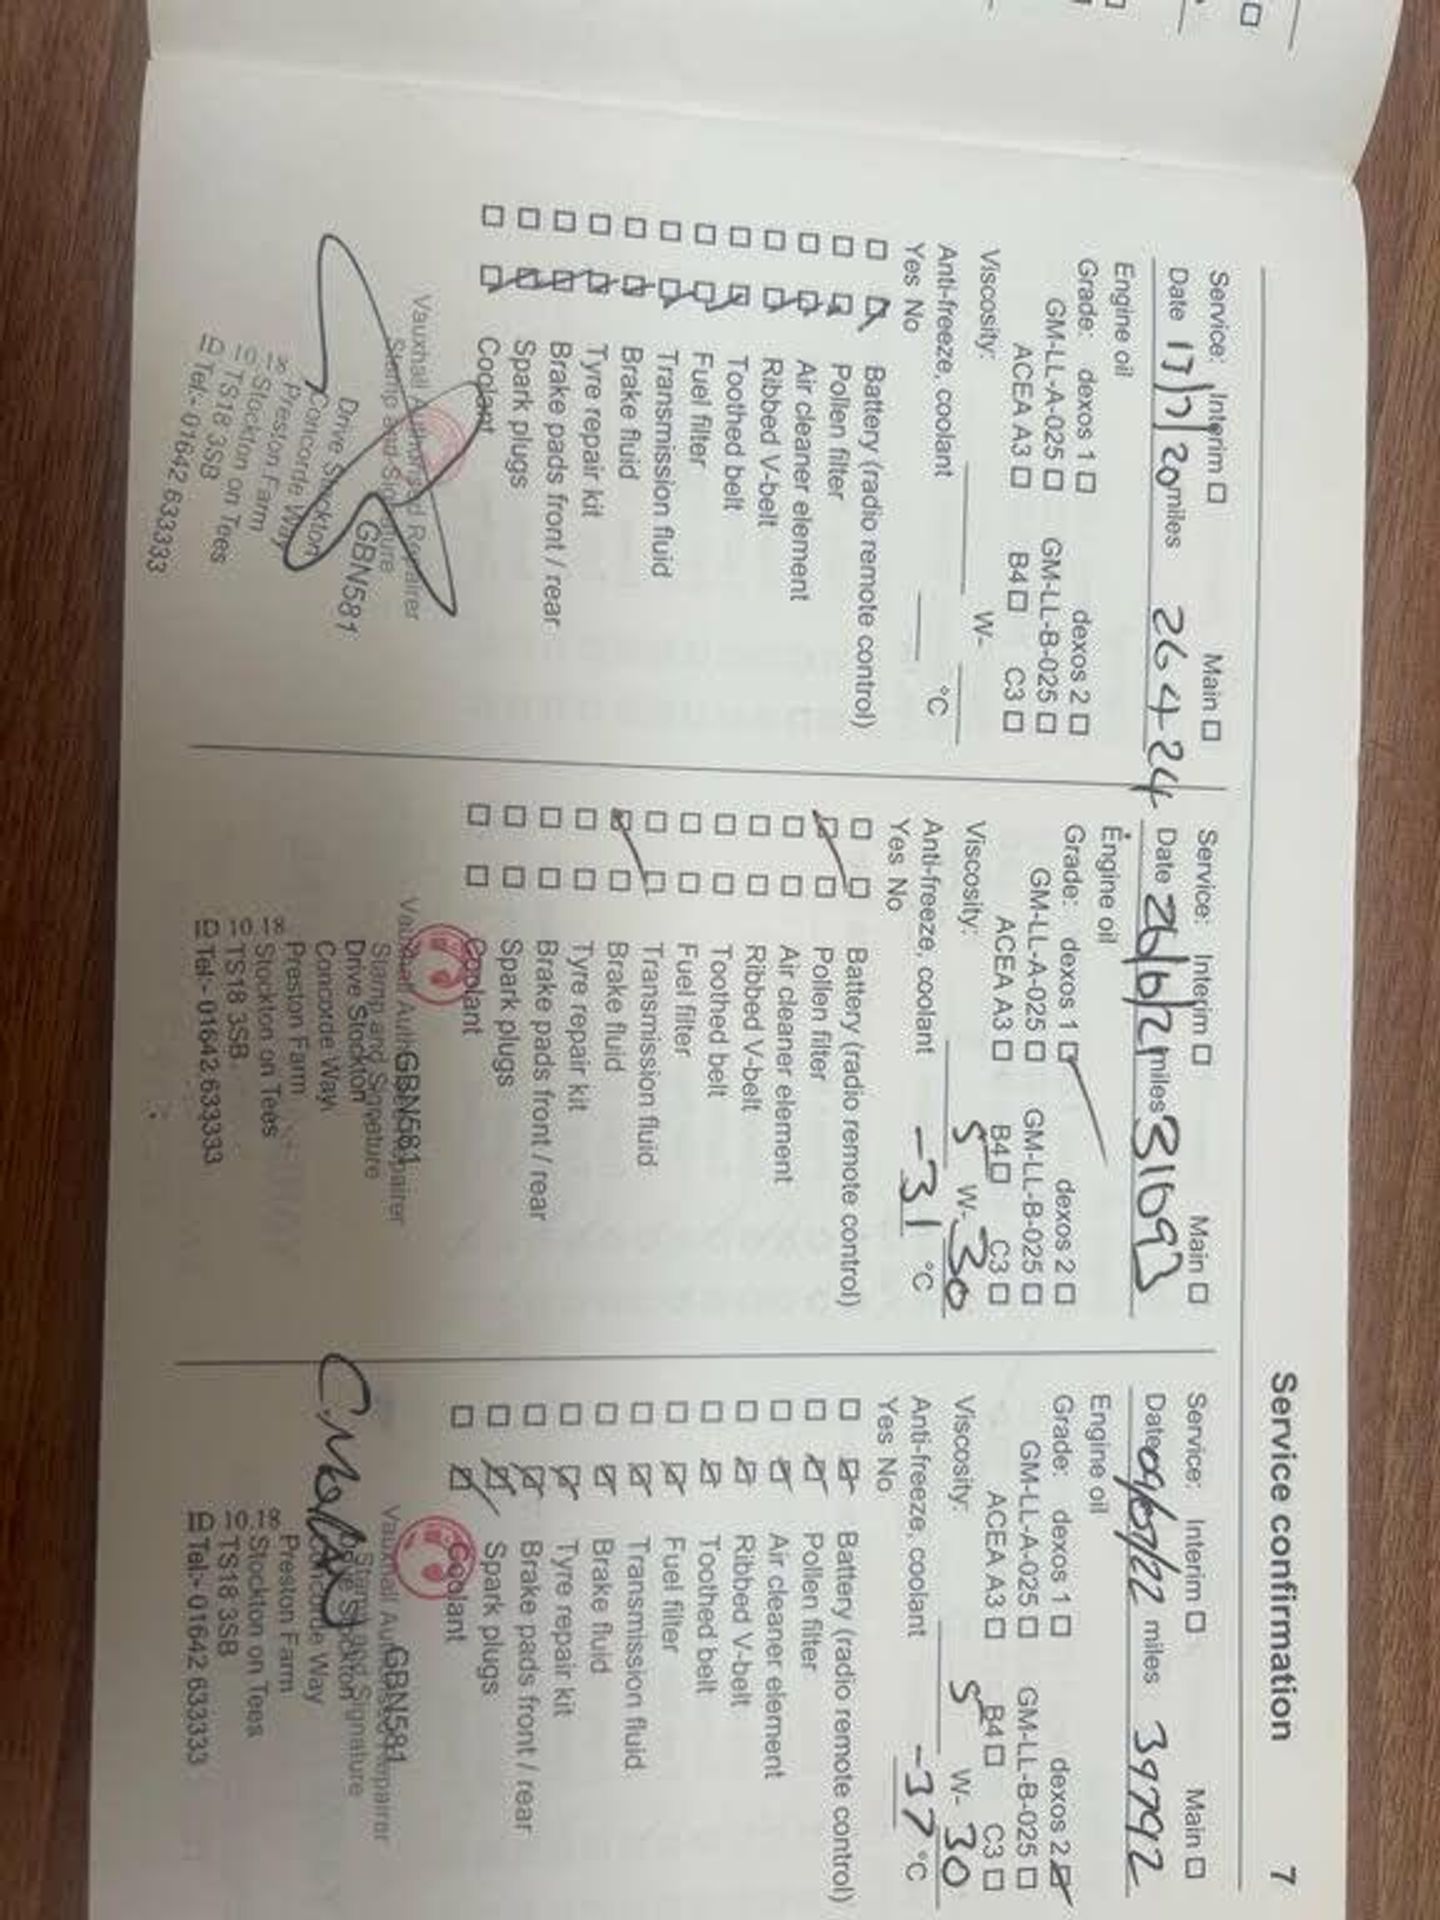 Service confirmation 7
Service: Interim □ Main □
Date 17/7/20 miles 26424
Engine oil
Grade: dexos 1 □ dexos 2 □
GM-LL-A-025 □ GM-LL-B-025 □
ACEA A3 □ B4 □ C3 □
Viscosity: W-
Anti-freeze, coolant °C
Yes No
Battery (radio remote control)
Pollen filter
Air cleaner element
Ribbed V-belt
Toothed belt
Fuel filter
Transmission fluid
Brake fluid
Tyre repair kit
Brake pads front / rear
Spark plugs
Coolant
Vauxhall Authorised Repairer
Stamp and Signature
GBN581
Drive Stockton
Concorde Way
Preston Farm
Stockton on Tees
TS18 3SB
Tel:- 01642 633333
Service: Interim □ Main □
Date miles 31093
Engine oil
Grade: dexos 1 ☑ dexos 2 □
GM-LL-A-025 □ GM-LL-B-025 □
ACEA A3 □ B4 □ C3 □
Viscosity: 5 W- 30
Anti-freeze, coolant -31 °C
Yes No
Battery (radio remote control)
Pollen filter
Air cleaner element
Ribbed V-belt
Toothed belt
Fuel filter
Transmission fluid
Brake fluid
Tyre repair kit
Brake pads front / rear
Spark plugs
Coolant
Vauxhall Authorised Repairer
GBN581
Stamp and Signature
Drive Stockton
Concorde Way
Preston Farm
Stockton on Tees
TS18 3SB
Tel:- 01642 633333
Service: Interim □ Main □
Date 09/07/22 miles 39792
Engine oil
Grade: dexos 1 □ dexos 2 ☑
GM-LL-A-025 □ GM-LL-B-025 □
ACEA A3 □ B4 □ C3 □
Viscosity: 5 W- 30
Anti-freeze, coolant -37 °C
Yes No
Battery (radio remote control)
Pollen filter
Air cleaner element
Ribbed V-belt
Toothed belt
Fuel filter
Transmission fluid
Brake fluid
Tyre repair kit
Brake pads front / rear
Spark plugs
Coolant
Vauxhall Authorised Repairer
GBN581
Stamp and Signature
Drive Stockton
Concorde Way
Preston Farm
Stockton on Tees
TS18 3SB
Tel:- 01642 633333